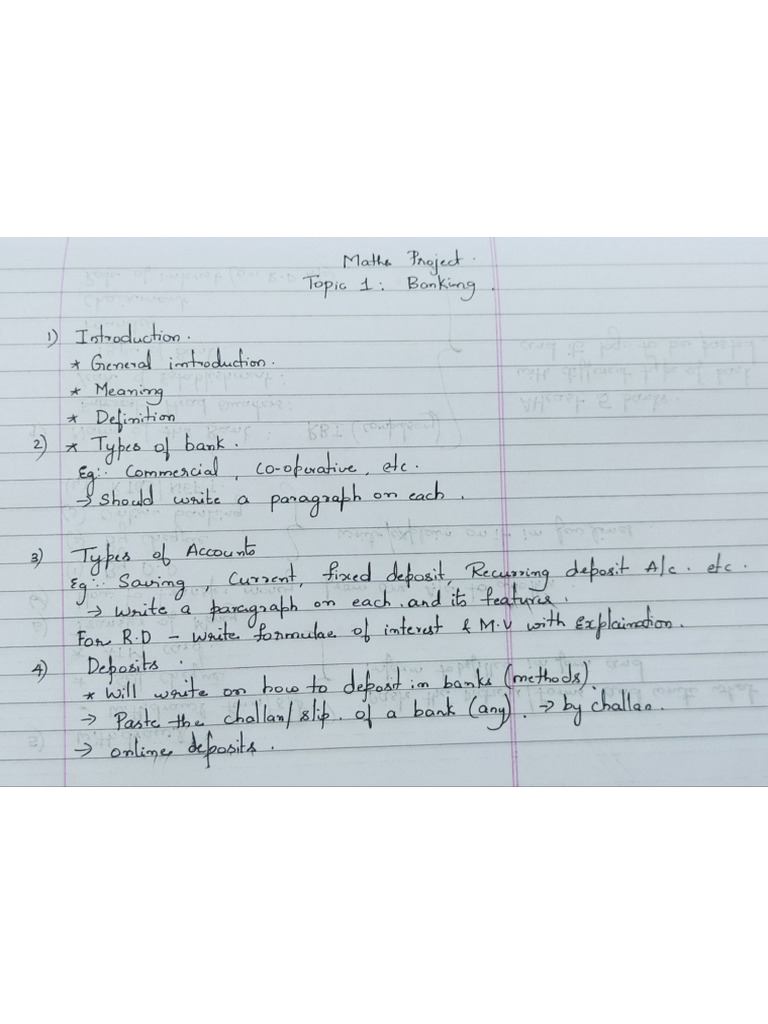 Maths Project.
Topic 1: Banking.
1) Introduction.
* General introduction.
* Meaning
* Definition
2) * Types of bank.
Eg:- Commercial, co-operative, etc.
→ Should write a paragraph on each.
3) Types of Accounts
Eg:- Saving, Current, fixed deposit, Recurring deposit A/c. etc.
→ write a paragraph on each and its features.
For R.D - write formulae of interest & M.V with Explaination.
4) Deposits.
* Will write on how to deposit in banks (methods).
→ Paste the challan/slip. of a bank (any). → by challan.
→ online deposits.